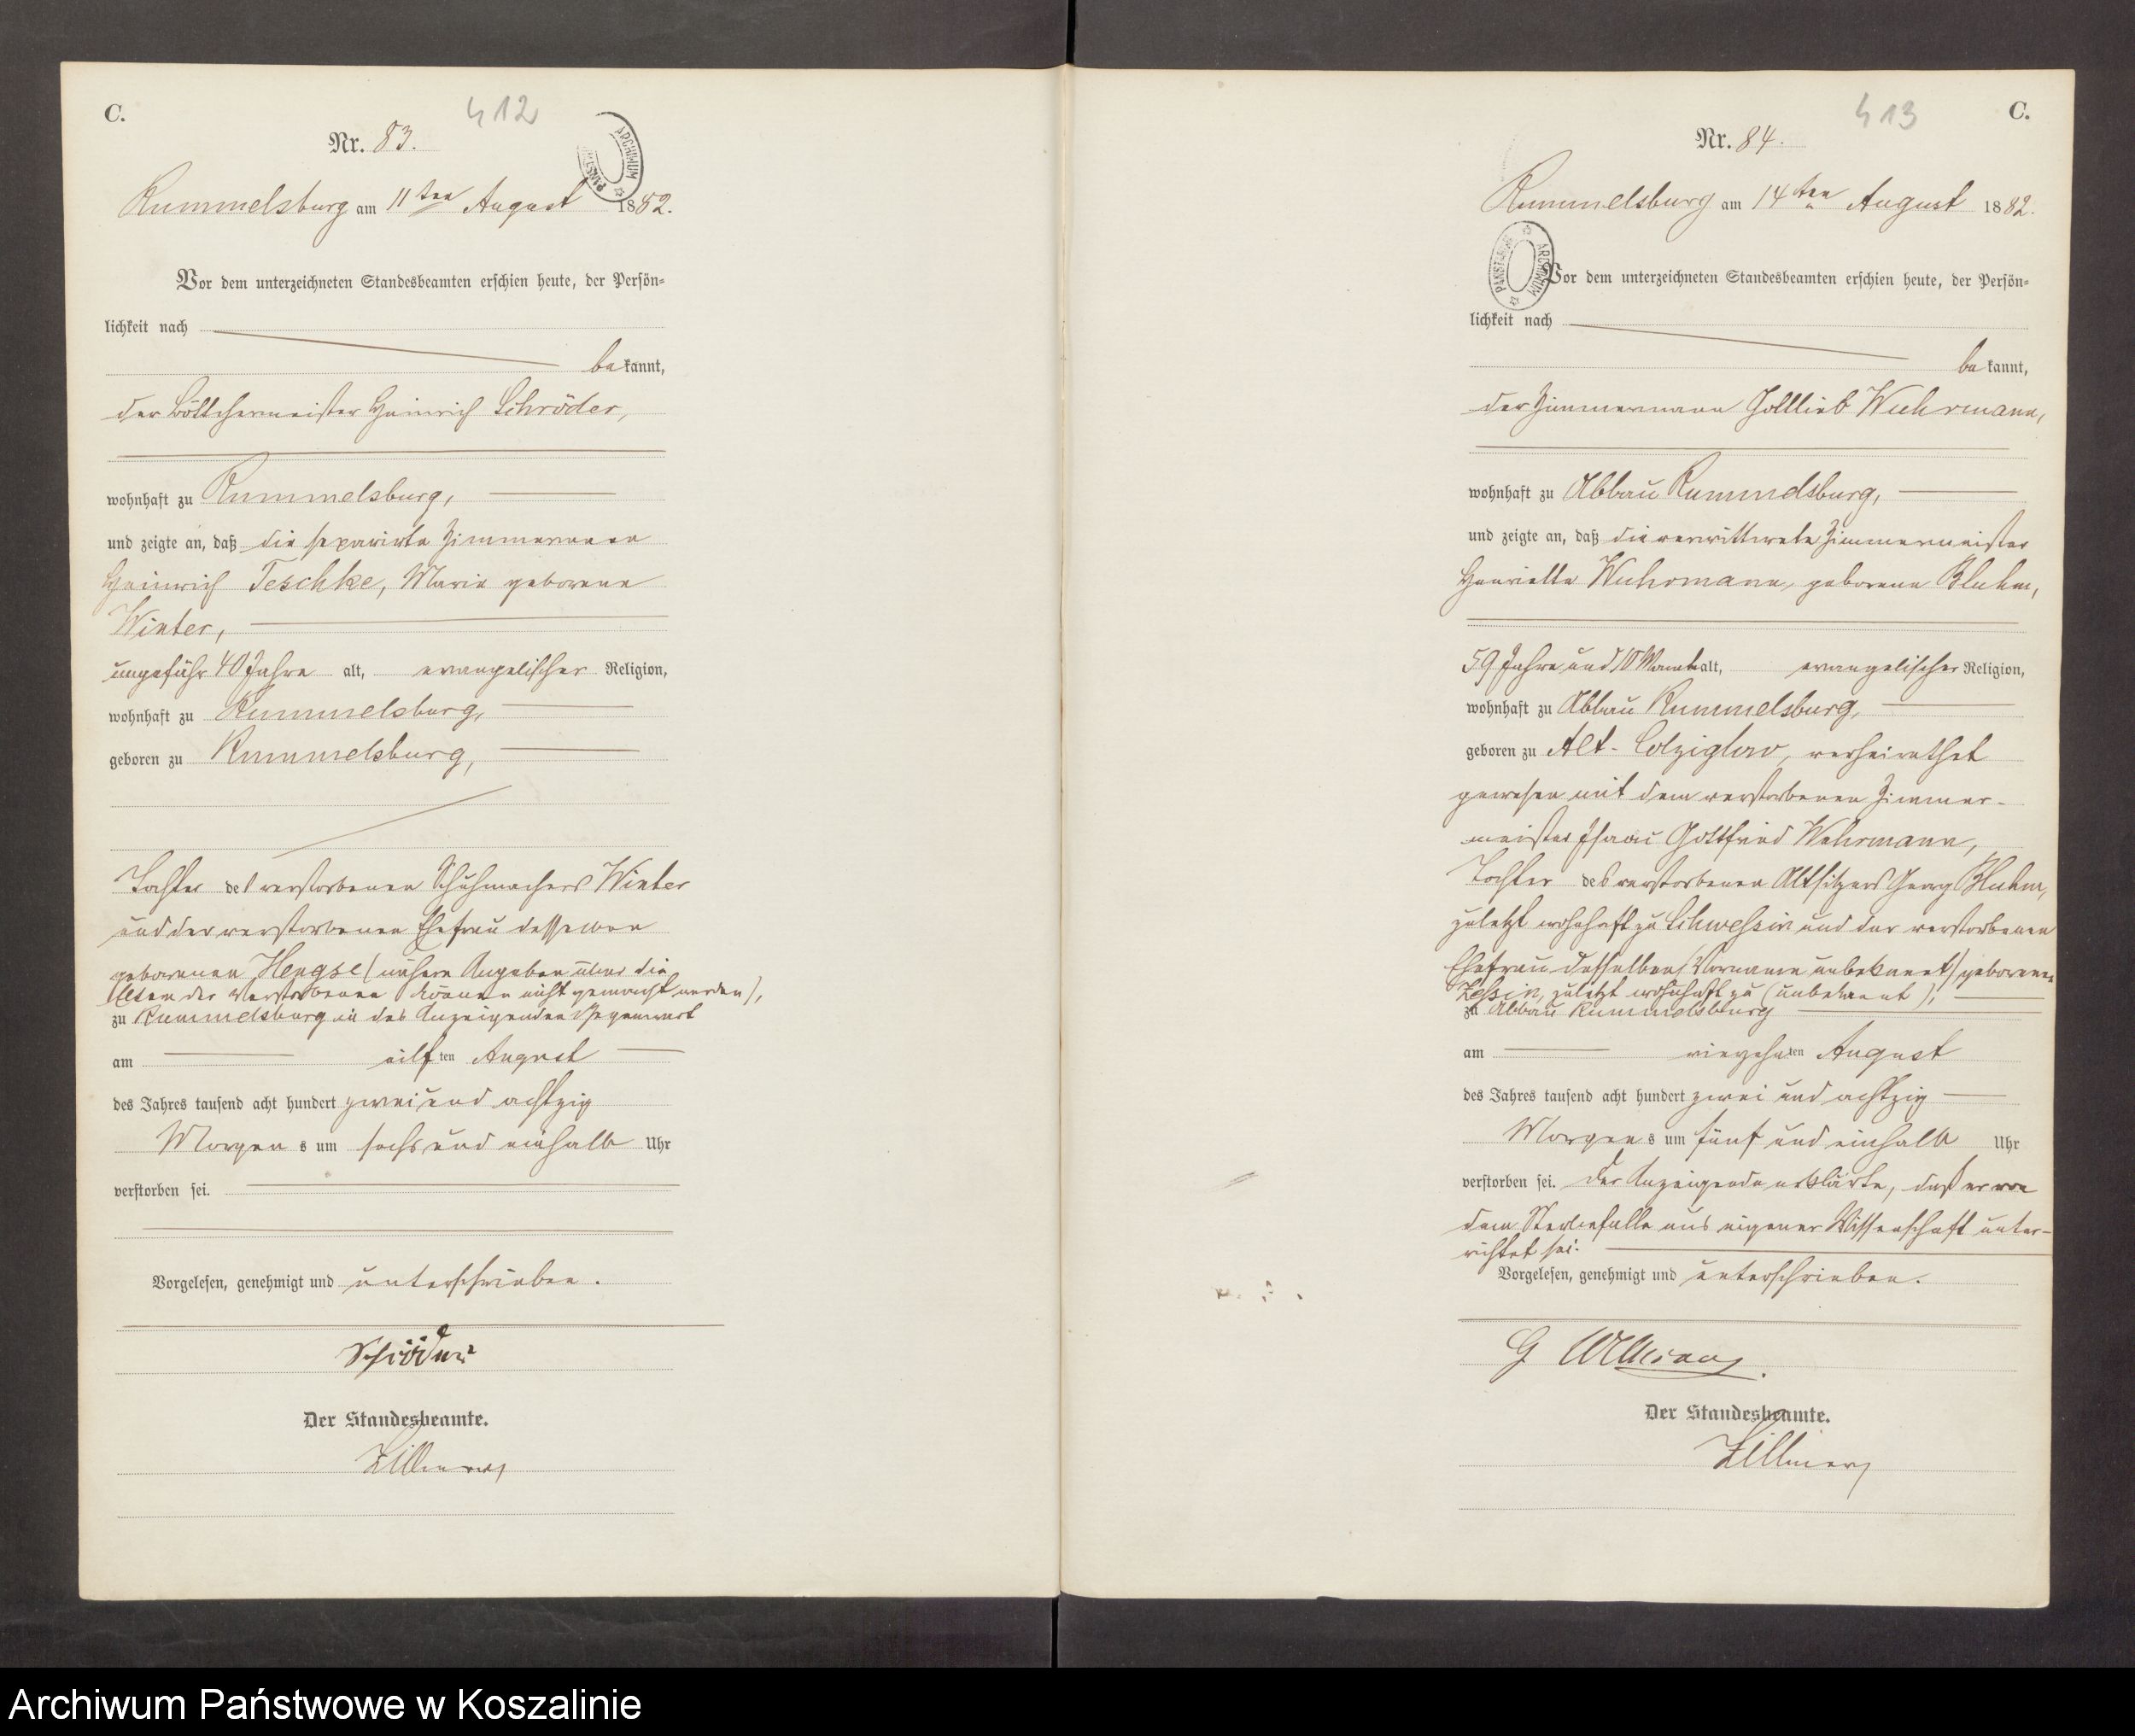 C.
412
Nr. 83.
ARCHIWUM PAŃSTWOWE
Rummelsburg am 11ten August 1882.
Vor dem unterzeichneten Standesbeamten erschien heute, der Persön-
lichkeit nach
bekannt,
der Böttchermeister Heinrich Schröder,
wohnhaft zu Rummelsburg,
und zeigte an, daß die separirte Zimmermann
Heinrich Teschke, Marie geborene
Winter,
ungefähr 40 Jahre alt, evangelischer Religion,
wohnhaft zu Rummelsburg,
geboren zu Rummelsburg,
Tochter des verstorbenen Schuhmachers Winter
und der verstorbenen Ehefrau
geborenen (nähere Angaben über die
Eltern der Verstorbenen können nicht gemacht werden),
zu Rummelsburg in des Anzeigenden Gegenwart
am eilften August
des Jahres tausend acht hundert zwei und achtzig
Morgens um sechs und einhalb Uhr
verstorben sei.
Vorgelesen, genehmigt und unterschrieben.
Schröder
Der Standesbeamte.
413
C.
Nr. 84.
Rummelsburg am 14ten August 1882.
ARCHIWUM PAŃSTWOWE
Vor dem unterzeichneten Standesbeamten erschien heute, der Persön-
lichkeit nach
bekannt,
der Zimmermann Gottlieb Wuhrmann,
wohnhaft zu Abbau Rummelsburg,
und zeigte an, daß die verwittwete Zimmermeister
Henriette Wuhrmann, geborene Bluhm,
59 Jahre und 10 Monate alt, evangelischer Religion,
wohnhaft zu Abbau Rummelsburg,
geboren zu Alt-Colziglow, verheirathet
gewesen mit dem verstorbenen Zimmer-
meister Gottfried Wuhrmann,
Tochter des verstorbenen Altsitzers Georg Bluhm,
zuletzt wohnhaft zu Schwessin und der verstorbenen
Ehefrau desselben (Vorname unbekannt) geborenen
Zessin, zuletzt wohnhaft zu (unbekannt),
zu Abbau Rummelsburg
am vierzehnten August
des Jahres tausend acht hundert zwei und achtzig
Morgens um fünf und einhalb Uhr
verstorben sei. Der Anzeigende erklärte, daß er von
dem Sterbefalle aus eigener Wissenschaft unter-
richtet sei.
Vorgelesen, genehmigt und unterschrieben.
G
Der Standesbeamte.
Archiwum Państwowe w Koszalinie